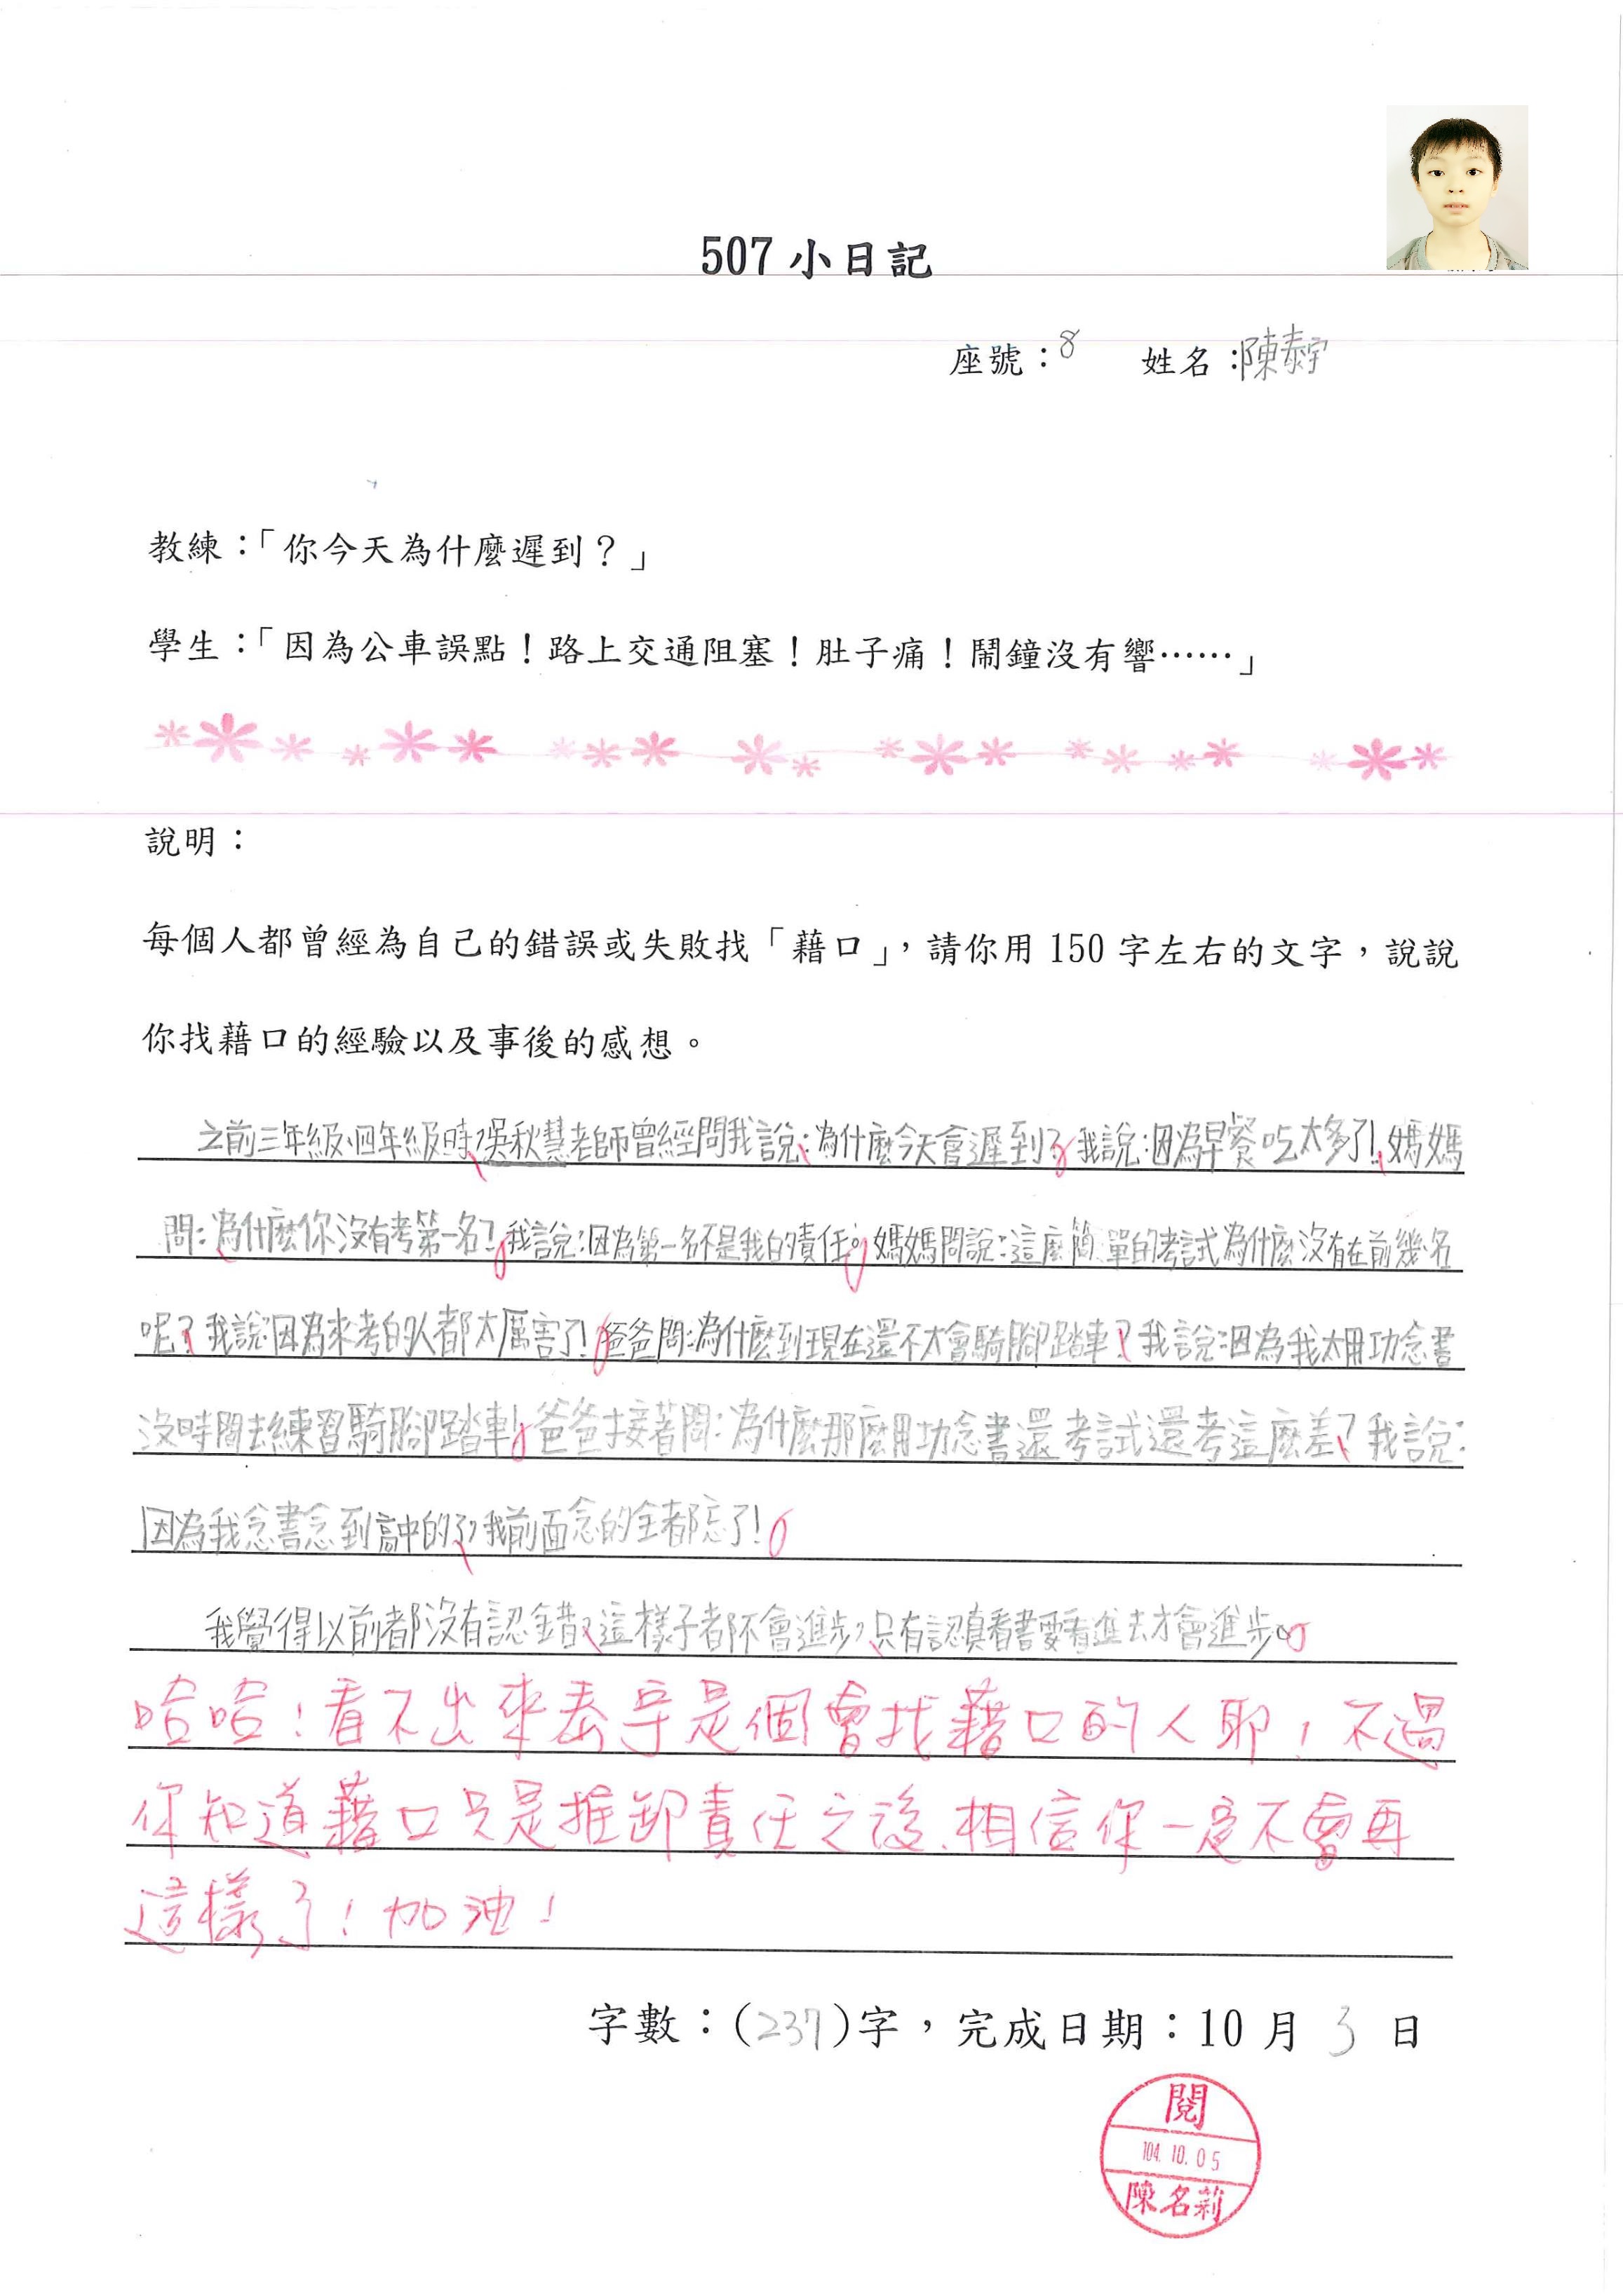 507 小日記
座號：8 姓名：陳泰宇
教練：「你今天為什麼遲到？」
學生：「因為公車誤點！路上交通阻塞！肚子痛！鬧鐘沒有響……」
說明：
每個人都曾經為自己的錯誤或失敗找「藉口」，請你用 150 字左右的文字，說說
你找藉口的經驗以及事後的感想。
之前三年級、四年級時，吳秋慧老師曾經問我說：為什麼今天會遲到？我說：因為早餐吃太多了！媽媽
問：為什麼你沒有考第一名？我說：因為第一名不是我的責任。媽媽問說：這麼簡單的考試為什麼沒有在前幾名
呢？我說：因為來考的人都太厲害了！爸爸問：為什麼到現在還不太會騎腳踏車？我說：因為我太用功念書
沒時間去練習騎腳踏車！爸爸接著問：為什麼那麼用功念書還考試還考這麼差？我說：
因為我念書念到高中的了，我前面念的全都忘了！
我覺得以前都沒有認錯，這樣子都不會進步，只有認真看書要看進去才會進步。
哈哈！看不出來泰宇是個會找藉口的人耶！不過
你知道藉口只是推卸責任之後、相信你一定不會再
這樣了！加油！
字數：（237）字，完成日期：10 月 3 日
閱
104. 10. 05
陳名莉